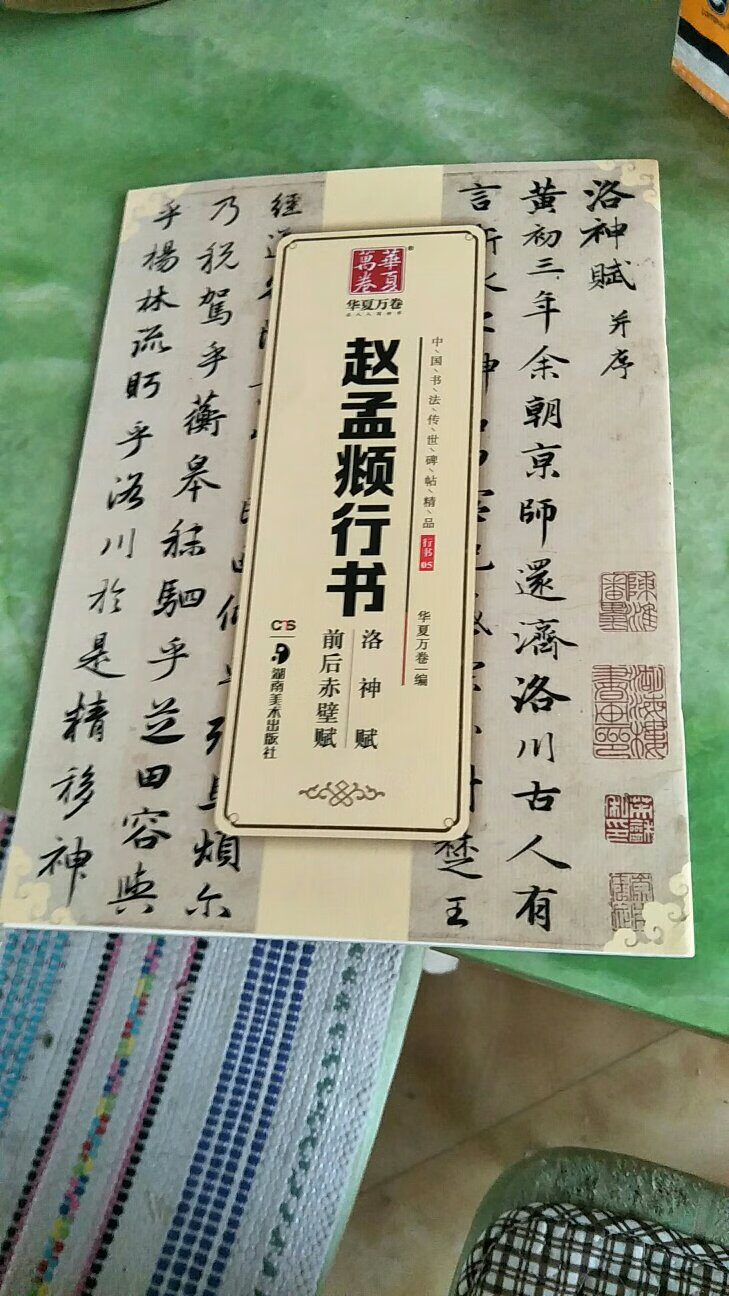 洛神赋 并序
黄初三年余朝京師還濟洛川古人有
言
楚王
經
乃税駕乎蘅皋秣駟乎芝田容與
乎楊林流眄乎洛川於是精移神
華夏
萬卷
华夏万卷
中国书法传世碑帖精品
行书05
华夏万卷 编
赵孟頫行书
洛神赋
前后赤壁赋
CTS
湖南美术出版社